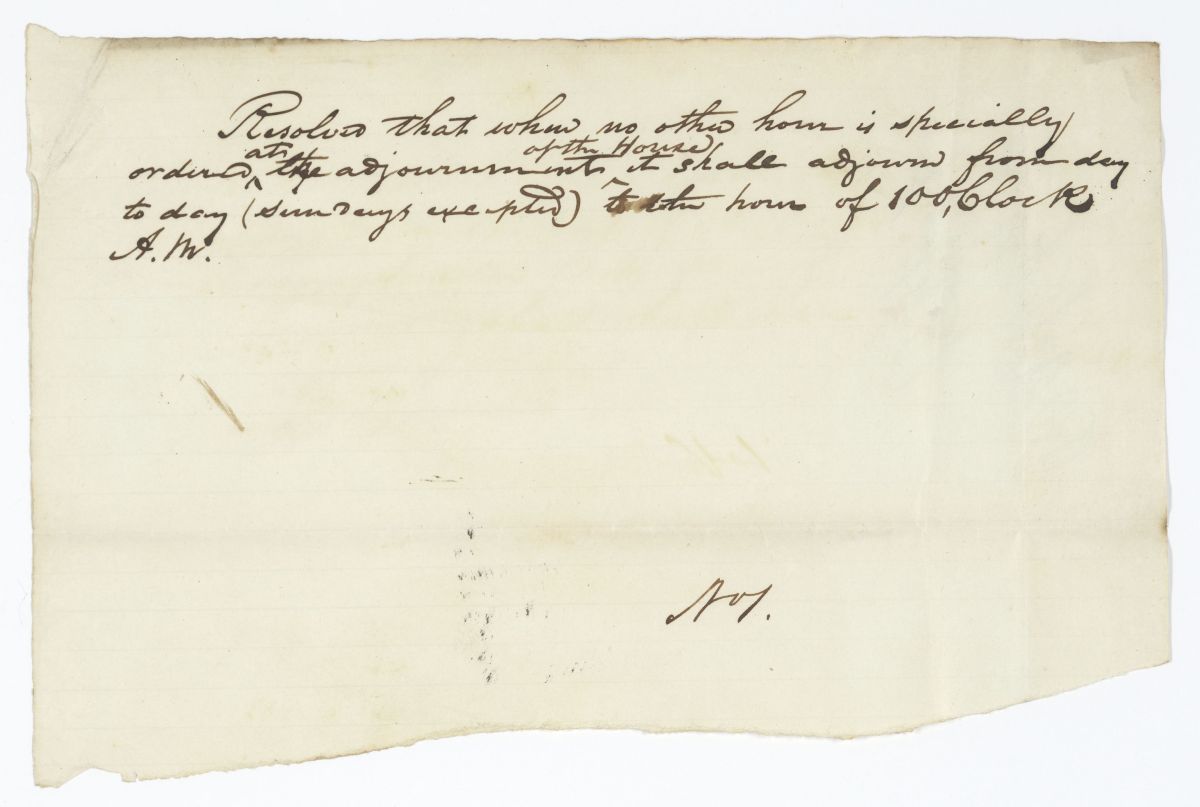 Resolved that when no other hour is specially
ordered at the adjournment of the House, it shall adjourn from day
to day (sundays excepted) to the hour of 10 O,Clock
A.M.
No 1.